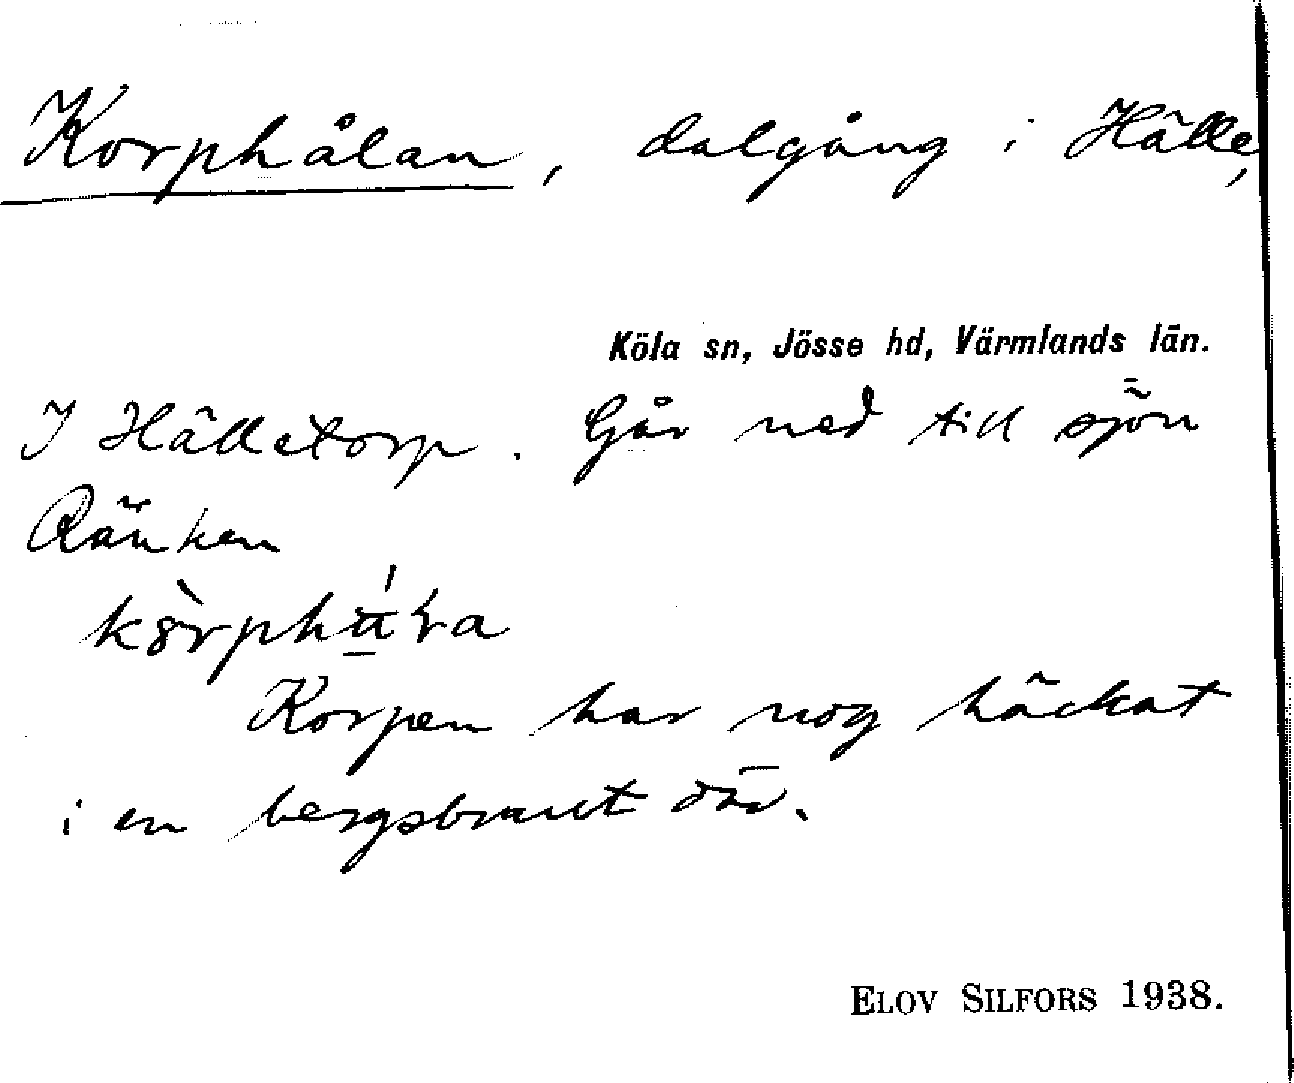 Korphålan, dalgång i Hälle,
Köla sn, Jösse hd, Värmlands län.
I Hälletorp. Går ned till sjön
Ränken
Korpen har nog häckat
i en bergsbrant där.
ELOV SILFORS 1938.